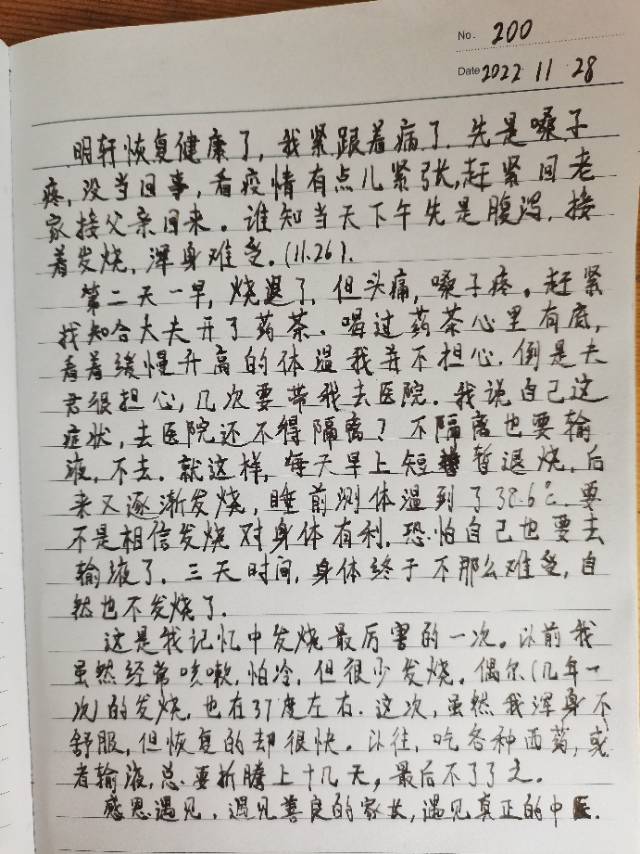 No. 200
Date 2022 11 28
明轩恢复健康了，我紧跟着病了。先是嗓子
疼，没当回事，看疫情有点儿紧张，赶紧回老
家接父亲回来。谁知当天下午先是腹泻，接
着发烧，浑身难受。(11.26).
第二天一早，烧退了，但头痛，嗓子疼。赶紧
找知合大夫开了药茶。喝过药茶心里有底，
看着缓慢升高的体温我并不担心。倒是夫
君很担心，几次要带我去医院。我说自己这
症状，去医院还不得隔离？不隔离也要输
液，不去。就这样，每天早上短暂退烧，后
来又逐渐发烧，睡前测体温到了38.6℃。要
不是相信发烧对身体有利，恐怕自己也要去
输液了。三天时间，身体终于不那么难受，自
然也不发烧了。
这是我记忆中发烧最厉害的一次。以前我
虽然经常咳嗽，怕冷，但很少发烧。偶尔(几年一
次)的发烧，也在37度左右。这次，虽然我浑身不
舒服，但恢复的却很快。以往，吃各种西药，或
者输液，总要折腾上十几天，最后不了了之。
感恩遇见，遇见善良的家长，遇见真正的中医.